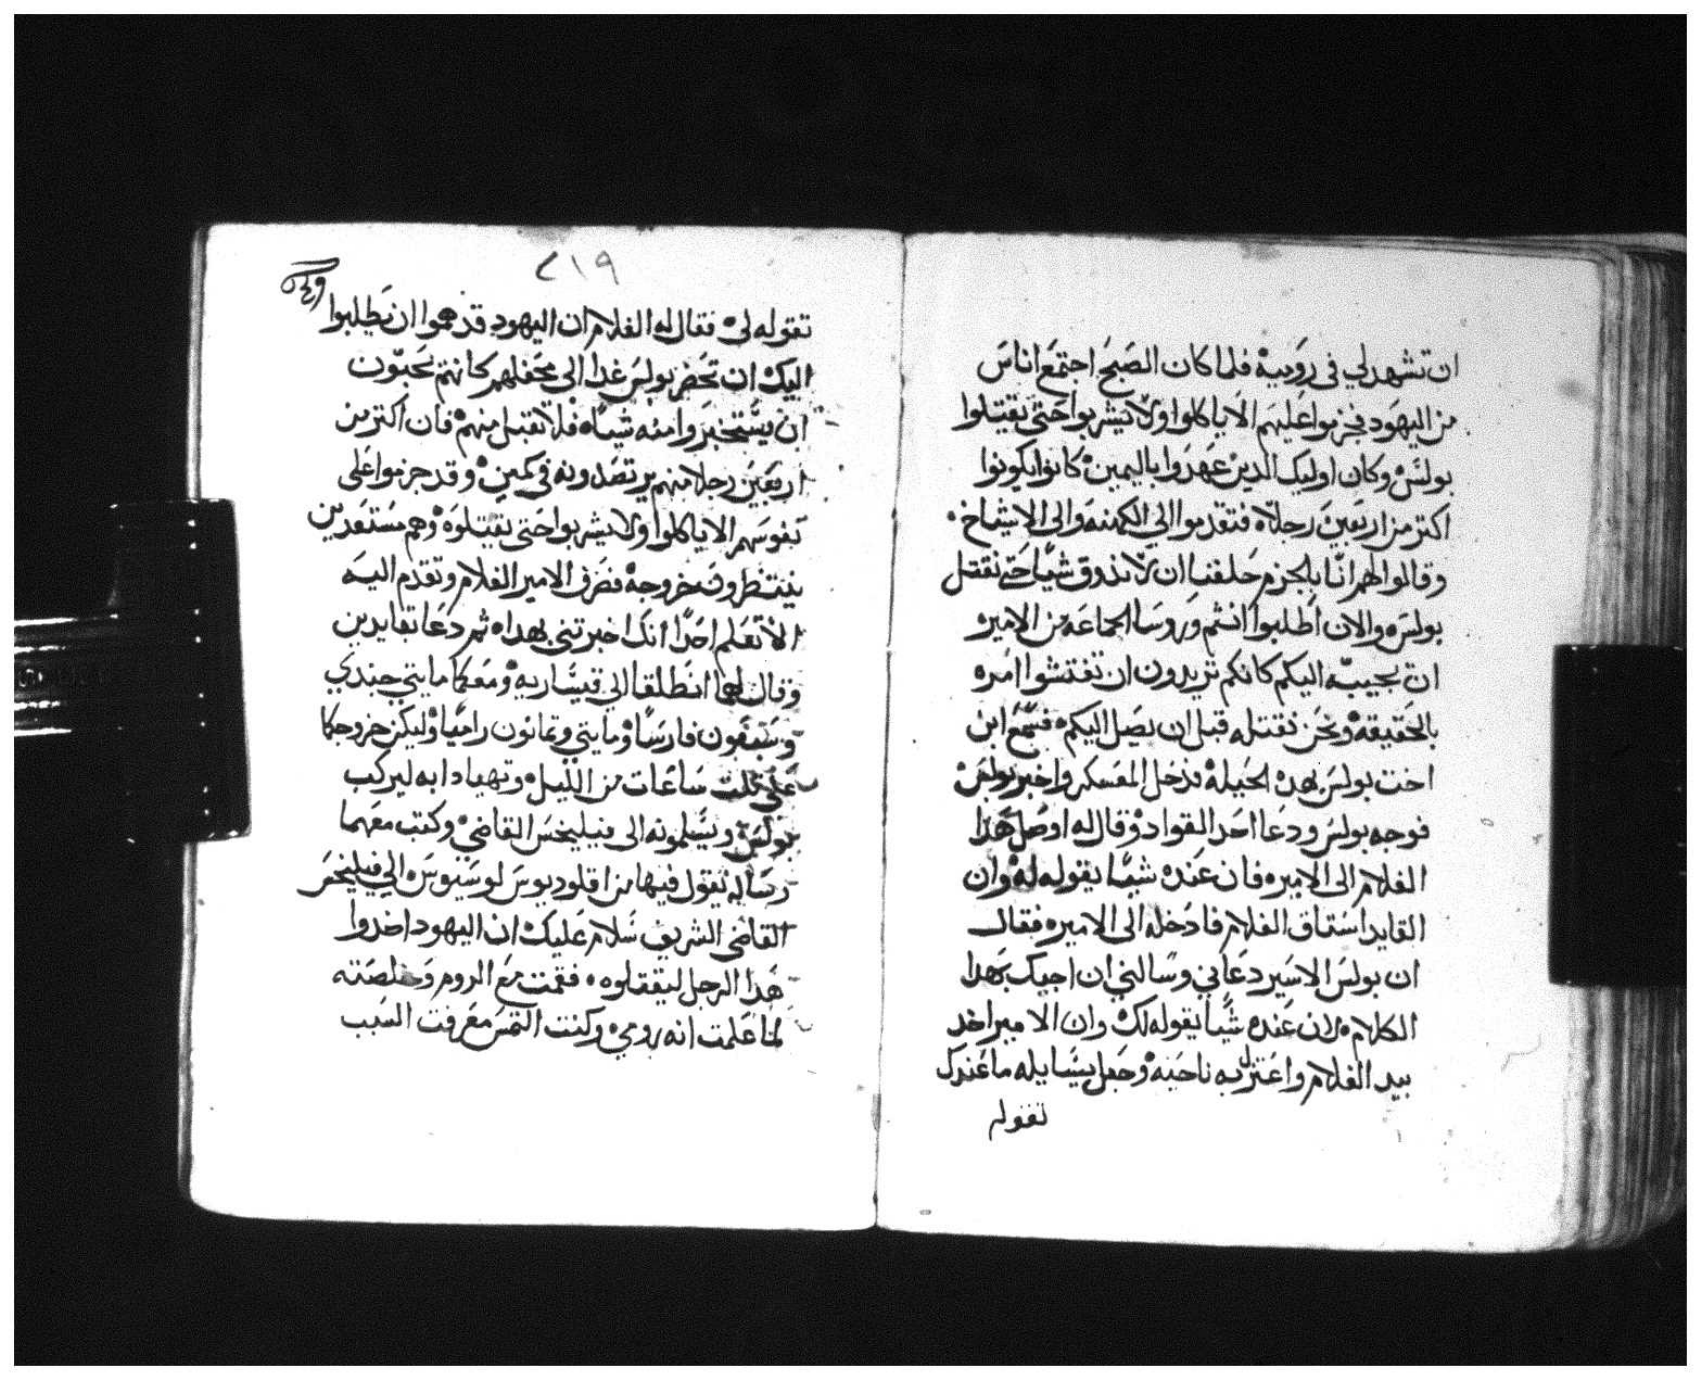 ان تشهد لي في روميه فلما كان الصبح اجتمع اناس
من اليهود فجزموا عليهم الا ياكلوا ولا يشربوا حتي يقيتلوا
بولس وكان اوليك الدين عهدوا باليمين كانوا يكونوا
اكتر من اربعين رجلا فتقدموا الي الكهنه والي الاشياخ
وقالوا لهم اننا بالجزم حلفنا ان لا ندوق شيا حتي نقتل
بولس والان اطلبوا انتم وروسا الجماعه من الامير
ان يجيبه اليكم كانكم تريدون ان تفتشوا امره
بالحقيقه ونحن نقتله قبل ان يصل اليكم فسمع ابن
اخت بولس بهده الحيله فدخل المعسكر واخبر بولس
فوجه بولس ودعا احد القواد وقال له اوصل هدا
الغلام الى الامير فان عنده شيا يقوله له وان
القايد استاق الغلام فادخله الى الامير فقال
ان بولس الاسير دعاني وسالني ان اجيك بهدا
الكلام لان عنده شيا يقوله لك وان الامير اخد
بيد الغلام واعتزل به ناحيه وجعل يسايله ما عندك
تقوله
٢١٩
تقوله لي فقال له الغلام ان اليهود قد هموا ان يطلبوا
اليك ان تحضر بولس غدا الى محفلهم كانهم يحبون
ان يستخبروا منه شيا فلا تقبل منهم فان اكتر من
اربعين رجلا منهم يرتصدونه في كمين وقد جزموا على
نفوسهم الا ياكلوا ولا يشربوا حتى يقيتلوه وهم مستعدين
ينتظرون خروجه فصرف الامير الغلام وتقدم اليه
الا تعلم احدا انك اخبرتني بهدا ثم دعا تقايدين
وقال لهما انطلقا الي قيساريه ومعكما مايتي جندي
وسبعون فارسا ومايتي وتمانون راميا وليكن خروجكما
على تلت ساعات من الليل وتهيا دابه ليركب
بولس ويسلمونه الى فيليخس القاضي وكتب معهما
رساله يقول فيها من اقلوديوس لوسيوس الي فيليخس
القاضي الشريف سلام عليك ان اليهود اخدوا
هدا الرجل ليقتلوه فقمت مع الروم وخلصته
لما علمت انه رومي وكنت التمس معرفت السبب